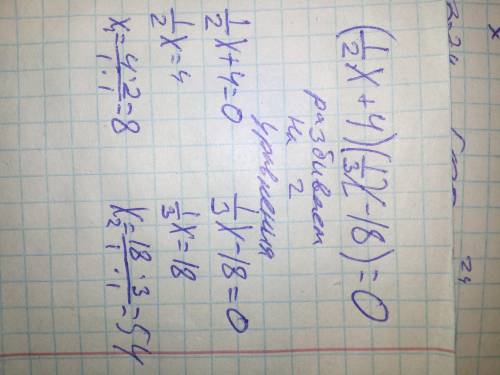 (1/2 x + 4)(1/3 x - 18) = 0
разбиваем
на 2
уравнения
1/2 x + 4 = 0
1/3 x - 18 = 0
1/2 x = 4
1/3 x = 18
x₁ = 4·2/1·1 = 8
x₂ = 18·3/1·1 = 54
24